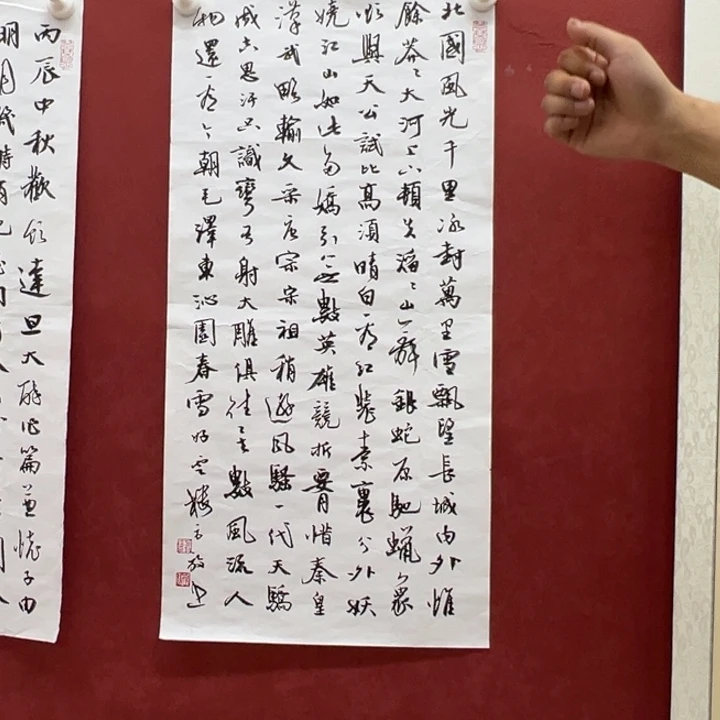 北國風光千里冰封萬里雪飄望長城内外惟
餘莽〻大河上下頓失滔〻山舞銀蛇原馳蠟象
欲與天公試比高須晴日看紅裝素裹分外妖
嬈江山如此多嬌引無數英雄競折腰惜秦皇
漢武略輸文采唐宗宋祖稍遜風騷一代天驕
成吉思汗只識彎弓射大雕俱往矣數風流人
物還看今朝毛澤東沁園春雪
丙辰中秋歡飲達旦大醉作篇兼懷子由
明月幾時有把酒問